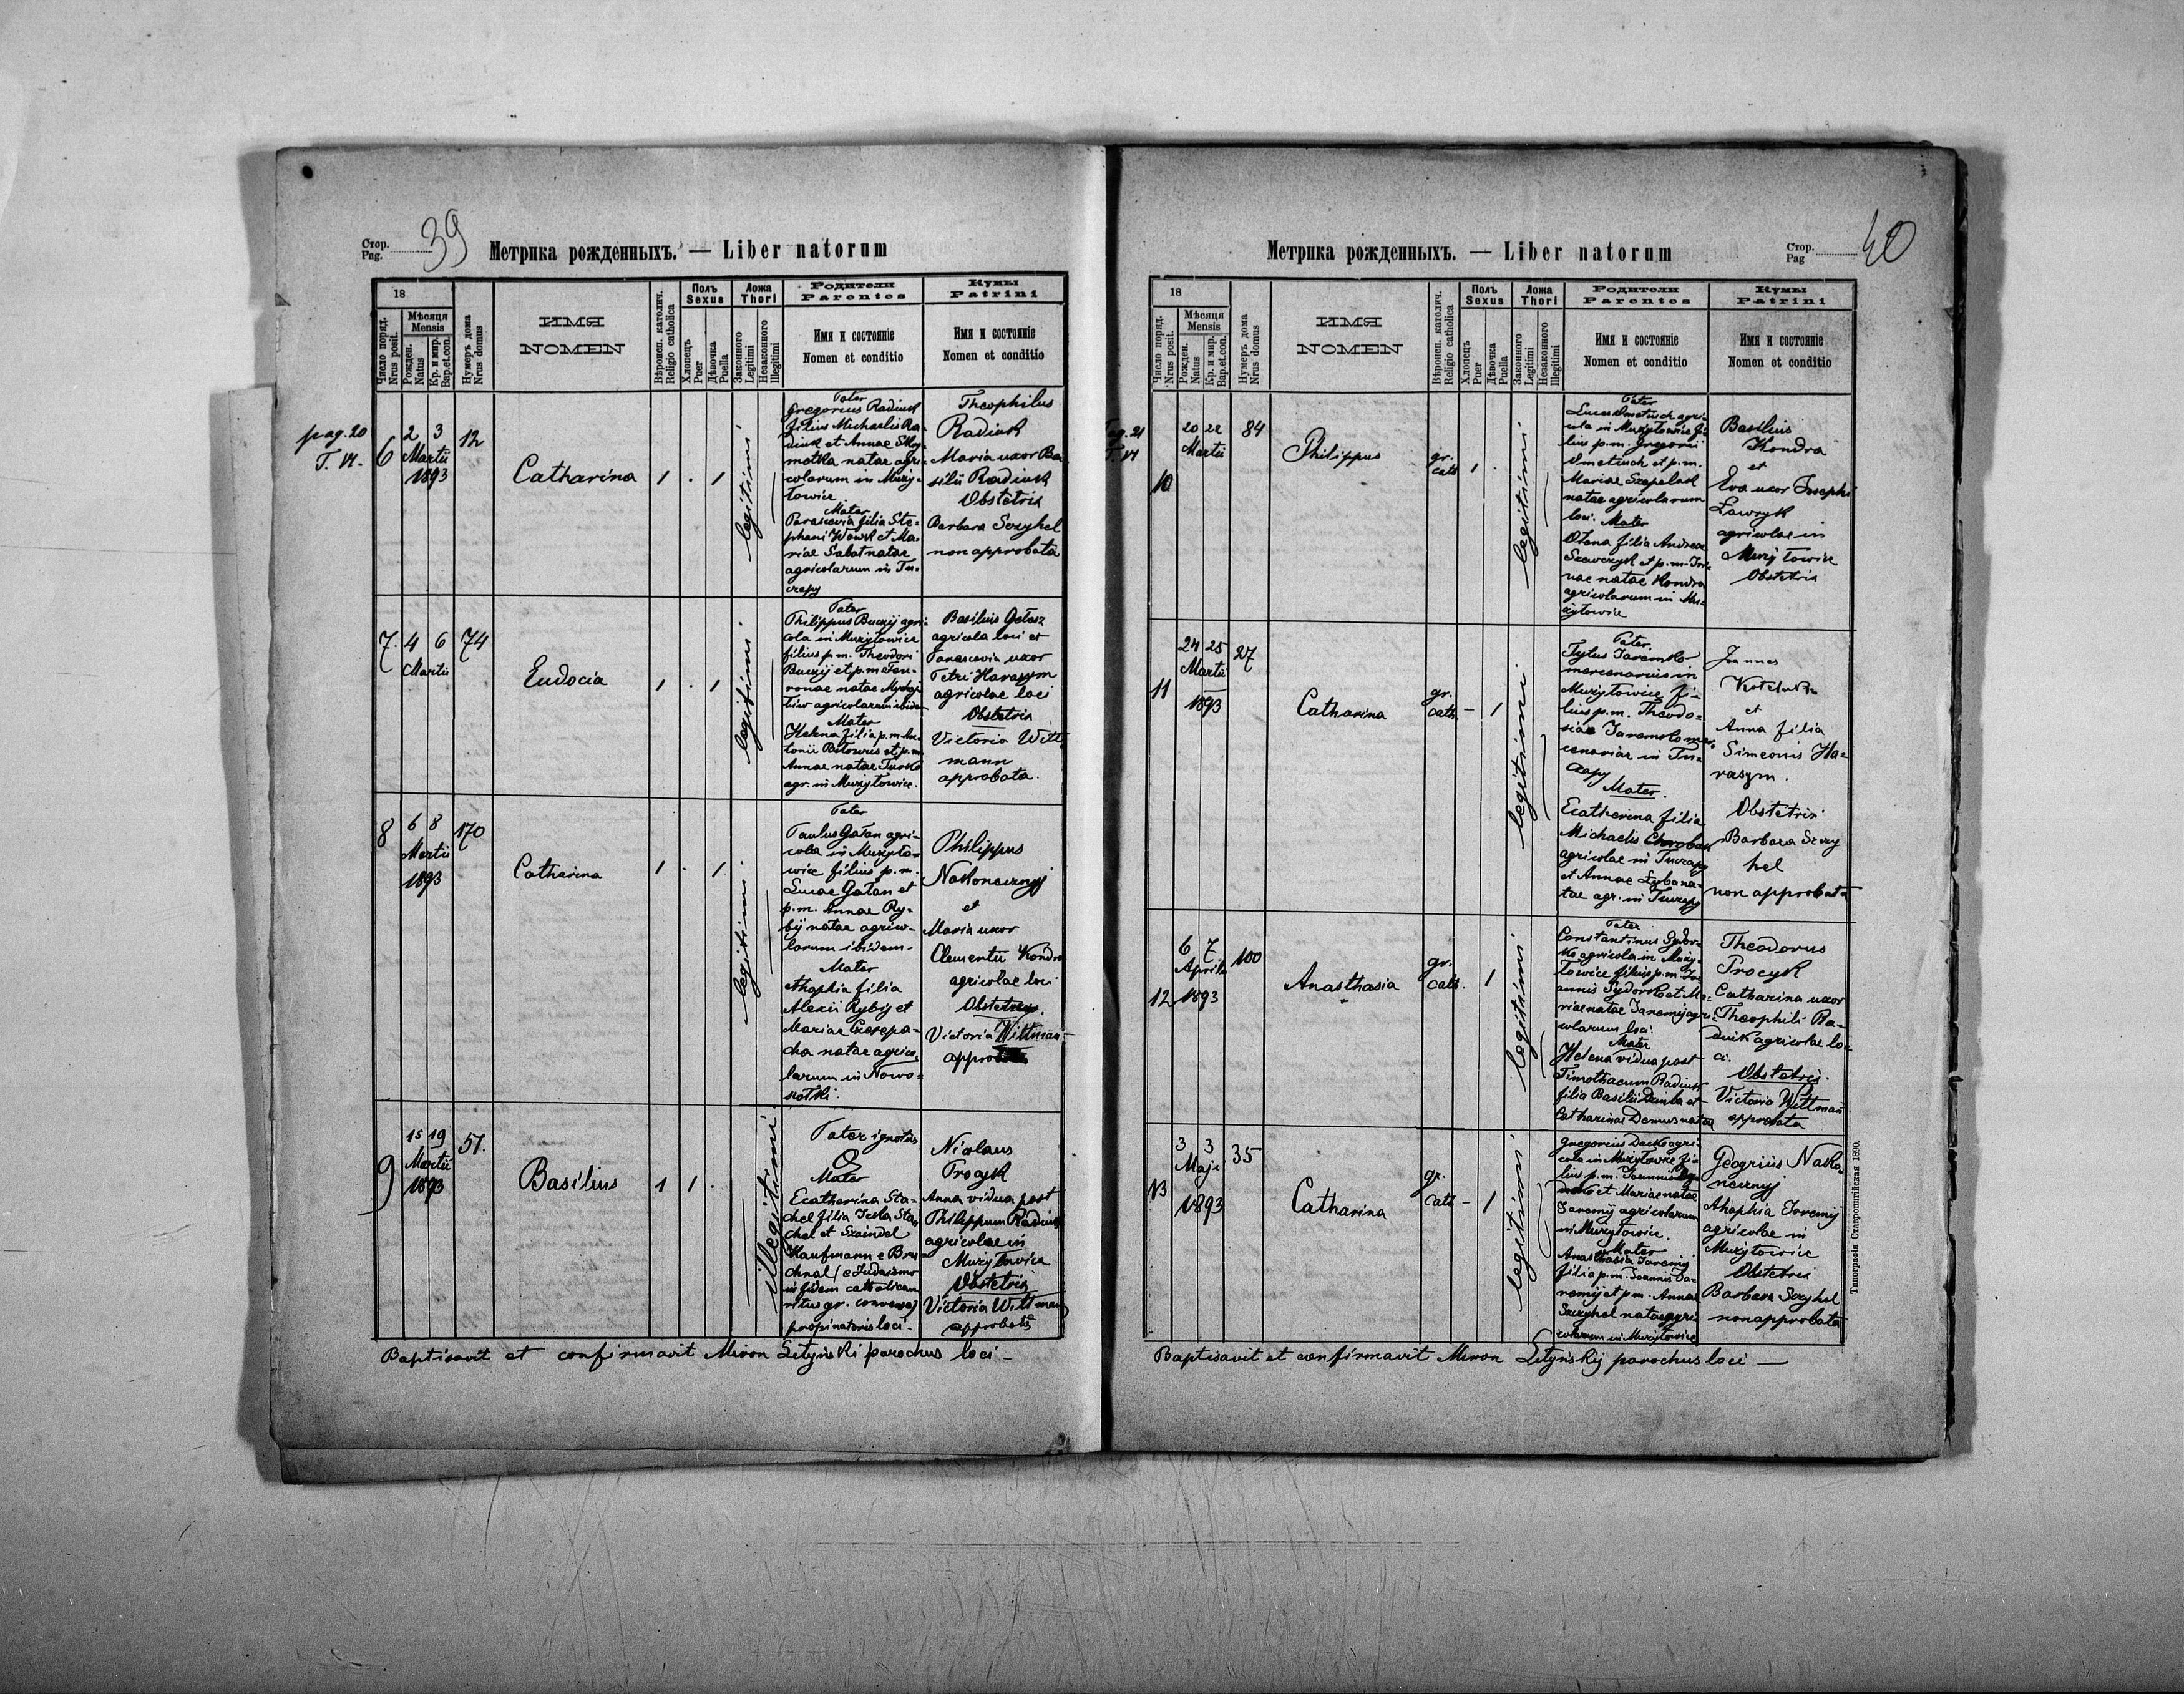 Стор.
Pag. 39
Метрика рожденныхъ. — Liber natorum
18
Число поряд.
Nrus posit.
Мѣсяця
Mensis
Рожден.
Natus
Кр. и мир.
Bap.et.con.
Нумеръ дома
Nrus domus
ИМЯ
NOMEN
Вѣроисп. католич.
Religio catholica
Полъ
Sexus
Хлопецъ
Puer
Дѣвочка
Puella
Ложа
Thori
Законного
Legitimi
Незаконного
Illegitimi
Родители
Parentes
Имя и состояніе
Nomen et conditio
Кумы
Patrini
Имя и состояніе
Nomen et conditio
pag. 20
T. VI.
6
2 3
Martii
1893
12
Catharina
1 . 1
legitimi
Pater
Gregorius Radiuk
filius Michaelis Ra-
diuk et Annae
metka natae agri-
colarum in Muży-
łowice
Mater
Parascevia filia Ste-
phani Wowk et Ma-
riae Sabat natae
agricolarum in Tu-
czapy
Theophilus
Radiuk
Maria uxor Ba-
silii Radiuk
Obstetrix
Barbara Sczyhel
non approbata
7.
4 6
Martii
74
Eudocia
1 . 1
legitimi
Pater
Philippus Buczij agri-
cola in Mużyłowice
filius p.m. Theodori
Buczij et p.m.
ronae natae
agricolarum ibidem
Mater
Helena filia p.m. An-
tonii et p.m.
Annae natae
agr. in Mużyłowice.
Basilius Gołosz
agricola loci et
Parascevia uxor
Petri Harasym
agricolae loci
Obstetrix
Victoria Witt
mann
approbata.
8
6 8
Martii
1893
170
Catharina
1 . 1
legitimi
Pater
Paulus Gałan agri-
cola in Mużyło-
wice filius p.m.
Lucae Gałan et
p.m. Annae Ry-
bij natae agrico-
larum ibidem.
Mater
Ahaphia filia
Alexii Rybij et
Mariae Czerepa-
cha natae agrico-
larum in Nowo-
siółki.
Philippus
Nakonecznyj
et
Maria uxor
Clementii Kondra
agricolae loci
Obstetrix.
Victoria Wittman
9
15 19
Martii
1893
51.
Basilius
1 1 .
illegitimi
Pater ignotus
Mater
Ecatherina Sta-
chel filia Icka Sta-
chel et Szaindel
Kaufmann e Bru-
chnal (e Judaismo
in fidem catholicam
ritus gr. conversa)
propinatoris loci.
Nicolaus
Procyk
Anna vidua post
Philippum Radiuk
agricolae in
Mużyłowice
Obstetrix
Victoria Wittman
approbata
Baptisavit et confirmavit Miron Łetyński parochus loci —
Метрика рожденныхъ. — Liber natorum
Стор.
Pag 40
18
Число поряд.
Nrus posit.
Мѣсяця
Mensis
Рожден.
Natus
Кр. и мир.
Bap.et.con.
Нумеръ дома
Nrus domus
ИМЯ
NOMEN
Вѣроисп. католич.
Religio catholica
Полъ
Sexus
Хлопецъ
Puer
Дѣвочка
Puella
Ложа
Thori
Законного
Legitimi
Незаконного
Illegitimi
Родители
Parentes
Имя и состояніе
Nomen et conditio
Кумы
Patrini
Имя и состояніе
Nomen et conditio
pag. 21
T. VI
10
20 22
Martii
84
Philippus
gr.
cath 1 .
legitimi
Pater
Lucas Dmetruch agri-
cola in Mużyłowice fi-
lius p.m. Gregorii
Dmetruch et p.m.
Mariae Szapelak
natae agricolarum
loci. Mater
Olena filia Andreae
Szewczyk et p.m. Iri-
nae natae Kondra
agricolarum in Mu-
żyłowice
Basilius
Kondra
et
Eva uxor Josephi
Ławryk
agricolae in
Mużyłowice
Obstetrix
11
24 25
Martii
1893
27
Catharina
gr.
cath. — 1
legitimi
Pater.
Tytus Jaremko
mercenarius in
Mużyłowice fi-
lius p.m. Theodo-
siae Jaremko mer-
cenariae in Tu-
czapy
Mater.
Ecatherina filia
Michaelis Chrobak
agricolae in Tuczapy
et Annae Łyba na-
tae agr. in Tuczapy
Joannes
et
Anna filia
Simeonis Ha-
rasym.
Obstetrix
Barbara Sczy
hel
non approbata
12
6 7
Aprilis
1893
100
Anasthasia
gr.
cath. 1
legitimi
Pater
Constantinus Sydor-
ko agricola in Muży-
łowice filius p.m. Jo-
annis Sydorko et Ma-
riae natae Jaremij agri-
colarum loci.
Mater
Helena vidua post
Timothaeum Radiuk
filia Basilii et
Catharinae Demus natae
Theodorus
Procyk
Catharina uxor
Theophili Ra-
diuk agricolae lo-
ci.
Obstetrix.
Victoria Wittman
approbata
13
3 3
Maji
1893
35
Catharina
gr.
cath — 1
legitimi
Gregorius agri-
cola in Mużyłowice fi-
lius p.m. Joannis
et Mariae natae
Jaremij agricolarum
in Mużyłowice.
Mater
Anasthasia Jaremij
filia p.m. Joannis Ja-
remij et p.m. Annae
Sczyhel natae agri-
colarum in Mużyłowice
Geogrius Nako-
necznyj
Ahaphia Jaremij
agricolae in
Mużyłowice
Obstetrix
Barbara Sczyhel
non approbata
Baptisavit et confirmavit Miron Łetyńskij parochus loci —
Типографія Ставропигійская 1890.